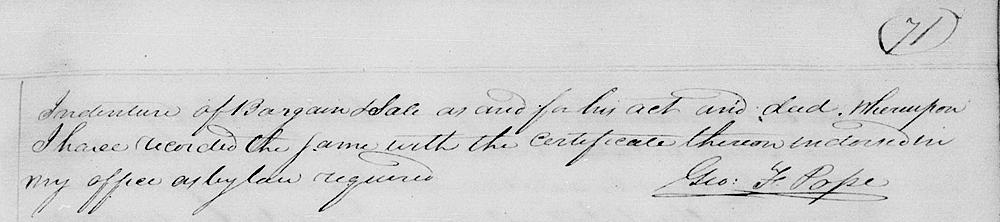 (71)
Indenture of Bargain & Sale as and for his act and deed. Whereupon
I have recorded the same with the certificate thereon indorsed in
my office as by law required
Geo: F. Pope